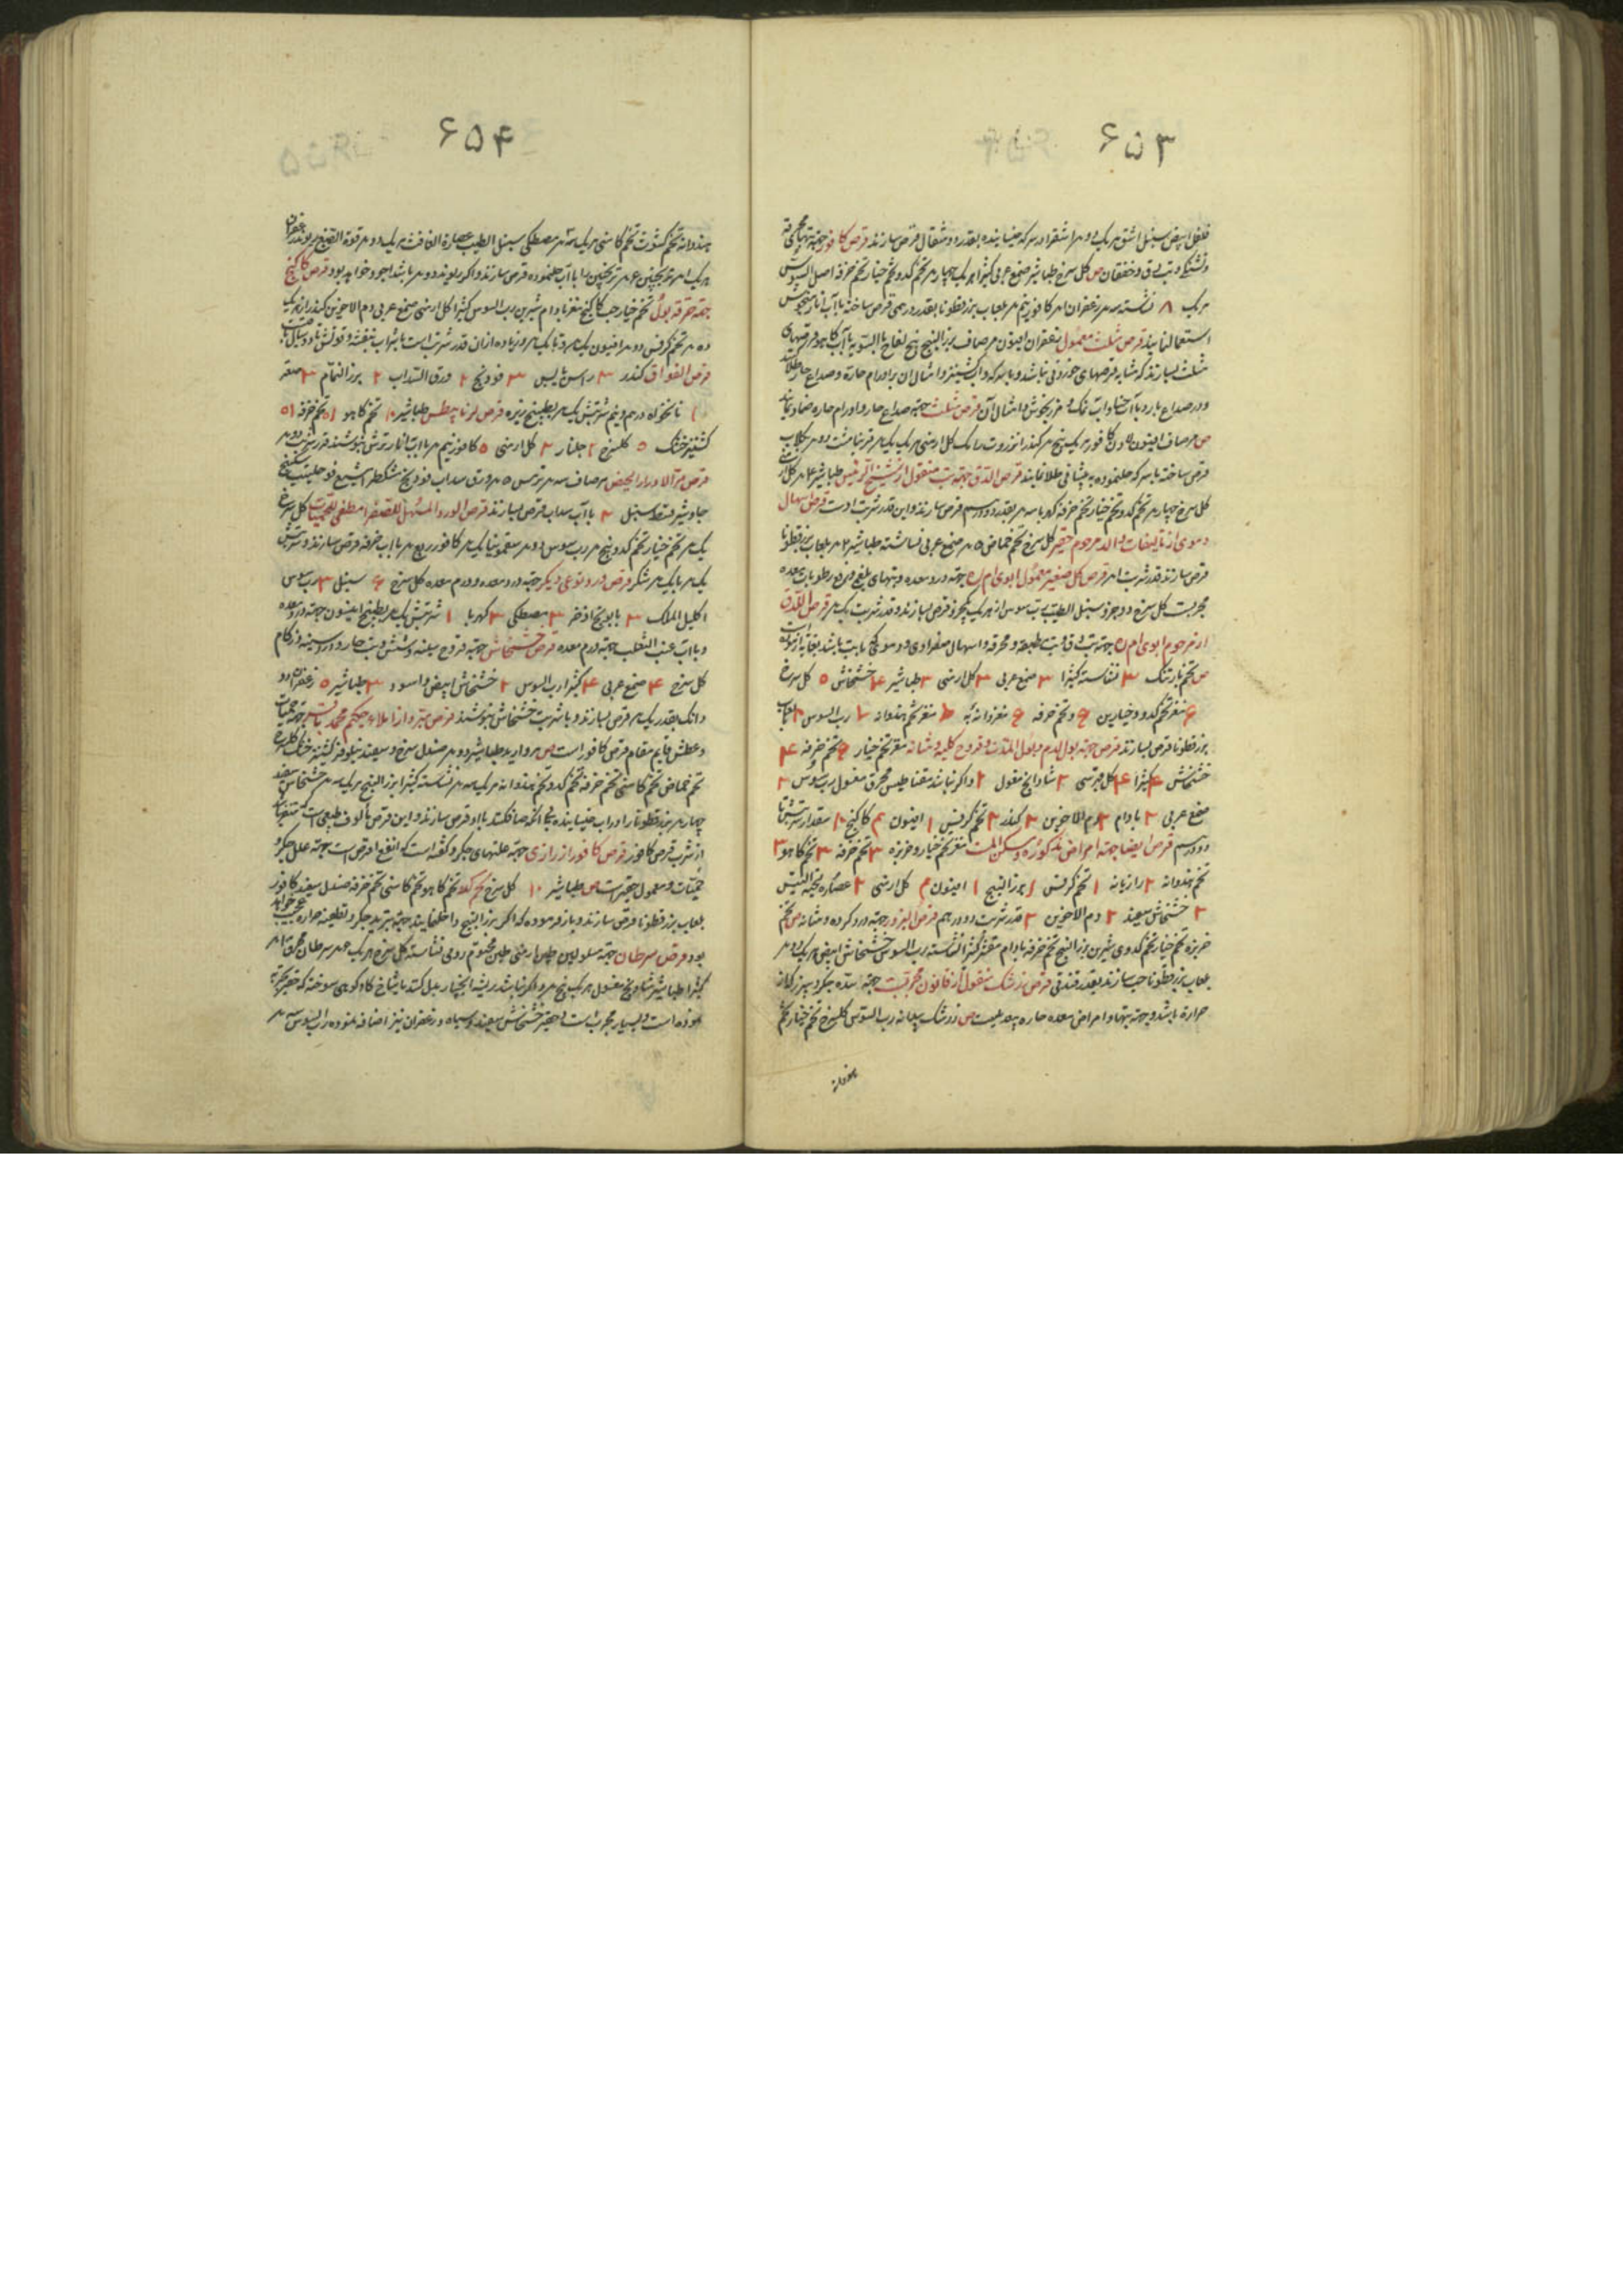 ۶۵۳
فلفل ابیض سنبل اشق هر یک دو م اشقرا در سرکه خیسانیده بقدر دو مثقال قرص سازند قرص کافور جهة تبهای محرقه
و تشنگی و تب دق و خفقان ص کل سرخ طباشیر صمغ عربی کثیرا هر یک چهار م تخم کدو تخم خیار تخم خرفه اصل السوس
هر یک ۸ نشاسته سه م زعفران م کافور نیم م بلعاب بزرقطونا بقدر درهمی قرص ساخته با آب انار میخوش
استعمال نمایند قرص مثلث معمول زعفران افیون مر صاف بزرالبنج بیخ لفاح بالسویه با آب کاهو قرصهای
مثلث بسازند که مشابه قرصهای خوردنی نباشد و با سرکه و آب کشنیز و امثال ان بر اورام حارة و صداع حار طلا
و در صداع بارد با آب حنا و آب نمک و مرزنجوش و امثال آن قرص مثلث جهة صداع حار و اورام حاره ضماد نمایند
ص مر صاف افیون کافور هر یک پنج م کندر انزروت رامک کل ارمنی هر یک یک م
قرص ساخته با سرکه حلنموده به پیشانی طلا نمایند قرص الدق جهة تب منقول از شیخ الرئیس طباشیر م کل ارمنی
کل سرخ چهار م تخم کدو تخم خیار تخم خرفه کهربا سه م بقدر دو درهم قرص سازند و این قدر شربت اوست قرص اسهال
دموی از تالیفات والد مرحوم حقیر کل سرخ تخم حماض ۵ م صمغ عربی نشاسته طباشیر ۲ م بلعاب بزرقطونا
قرص سازند قدر شربت م قرص کل صغیر معمول ابوی ام جهة درد معده و تبهای بلغمی و رطوبات معده
مجربست کل سرخ دو جزو سنبل الطیب رب سوس از هر یک یکجزو قرص بسازند و قدر شربت یک م قرص الدق
از مرحوم ابوی ام جهة تب دق و تب مطبقه و محرقه و اسهال صفراوی و دموی که با تب باشد بغایت ازموده
ص تخم بارتنک ۳ نشاسته کثیرا ۳ صمغ عربی ۳ کل ارمنی ۳ طباشیر ۴ خشخاش ۵ کل سرخ
۶ مغز تخم کدو و خیارین ۶ و تخم خرفه ۶ مغز دانه به ۶ مغز تخم هندوانه ۷ رب السوس ۲ بلعاب
بزرقطونا قرص بسازند قرص جهة بول الدم و بول المده و قروح کلیه و مثانه مغز تخم خیار ۶ تخم خرفه ۴
خشخاش ۴ کثیرا ۴ کل قبرسی ۲ شادانج مغسول ۲ و اکر نباشد مقناطیس محرق مغسول رب سوس ۲
صمغ عربی ۳ بادام ۳ دم الاخوین ۳ کندر ۳ تخم کرفس ۱ افیون م کاکنج ۱۰ مقدار شربتش تا
دو درهم قرص ایضا جهة امراض مذکوره و مسکن المست مغز تخم خیار و خربزه ۳ تخم خرفه ۳ تخم کاهو ۳
تخم هندوانه ۲ رازیانه ۱ تخم کرفس ۱ بزرالبنج ۱ افیون م کل ارمنی ۲ عصاره لحیة التیس
۲ خشخاش سفید ۲ دم الاخوین ۲ قدر شربت دو درهم قرص البزور جهة درد کرده و مثانه ص تخم
خربزه تخم خیار تخم کدوی شیرین بزرالبنج تخم خرفه بادام مقشر کثیرا نشاسته رب السوس خشخاش ابیض هر یک دو م
بلعاب بزرقطونا حب سازند بقدر فندقی قرص زرشک منقول از قانون مجربست جهة سده جکر و سپرز که از
حرارة باشد و جهة تبها و امراض معده حاره بیعدیلست ص زرشک بیدانه رب السوس کلسرخ تخم خیار تخم
هندوانه
۶۵۴
هندوانه تخم کشوث تخم کاسنی هر یک سه م مصطکی سنبل الطیب عصارة الغافث هر یک دو م فوة الصبغ ریوند زعفران
هر یک م ترنجبین م ترنجبین را با آب حلنموده قرص سازند و اکر ریوند دو م باشد اجود خواهد بود قرص کاکنج
جهة حرقة بول تخم خیار حب کاکنج مغز بادام شیرین رب السوس کثیرا کل ارمنی صمغ عربی دم الاخوین کندر از هر یک
ده م تخم کرفس دو م افیون یک م و تا یک م و زیاده ازان قدر شربت است با شراب بنفشه و قوتش تا دو سال باقیست
قرص الفواق کندر ۳ راسن یابس ۳ فودنج ۲ ورق السداب ۲ بزر النمام ۳ صعتر
۱ نانخواه درهم و نیم شربتش یک م بطبیخ زیره قرص لرناپیطس طباشیر ۱۰ تخم کاهو ۱۵ تخم خرفه ۱۵
کشنیز خشک ۵ کلسرخ ۲ جلنار ۲ کل ارمنی ۵ کافور نیم م با آب انار ترش بنوشند قدر شربت دو م
قرص مر لادرار الحیض مر صاف سه م ترمس ۵ م ورق سداب فودنج مشکطرامشیع فوه حلتیت سکبینج
جاوشیر قسط سنبل ۲ با آب سداب قرص بسازند قرص الورد المسهل للصفرا مطفی للحمیات کل سرخ
یک م تخم خیار تخم کدو پنج م رب سوس دو م سقمونیا یک م کافور ربع م با آب خرفه قرص سازند و شربتش
یک م با یک م شکر قرص ورد نوعی دیکر جهة درد معده و ورم معده کل سرخ ۶ سنبل ۳ رب سوس
اکلیل الملک ۳ بابونج اذخر ۳ مصطکی ۳ کهربا ۱ شربتش یک م بطبیخ انیسون جهة درد معده
و با آب عنب الثعلب جهة ورم معده قرص خشخاش جهة قروح سینه و شش و تب حار و درد سینه و زکام
کل سرخ ۴ صمغ عربی ۴ کثیرا رب السوس ۲ خشخاش ابیض و اسود ۳ طباشیر ۵ زعفران دو
دانک بقدر یک م قرص بسازند و با شربت خشخاش بنوشند قرص مبرد از املاء حکیم محمد باقر جهة حمیات
و عطش قایم مقام قرص کافور است ص مروارید طباشیر دو م صندل سرخ و سفید نیلوفر کشنیز خشک کلسرخ
تخم حماض تخم کاسنی تخم خرفه تخم کدو تخم هندوانه هر یک سه م نشاسته کثیرا بزرالبنج هر یک سه م خشخاش سفید
چهار م بزرقطونا را در آب خیسانیده بی انکه صاف کنند با او قرص سازند و این قرص مالوف طبعی است که متنفر باشد
از شرب قرص کافور قرص کافور از رازی جهة علتهای جکر و کفته است که انفع اقراص است جهة علل جکر و
حمیات و معمول حقیر است ص طباشیر ۱۰ کل سرخ تخم کدو تخم کاهو تخم کاسنی تخم خرفه صندل سفید کافور
بلعاب بزرقطونا قرص سازند و باز فرموده که اکر بزرالبنج داخل نمایند جهة تبرید جکر و تطفیه حرارة عجیب خواهد
بود قرص سرطان جهة مسلولین طین ارمنی طین مختوم رومی نشاسته کل سرخ هر یک م سرطان محرق م
کثیرا طباشیر شادنج مغسول هر یک پنج م و اکر نباشد ریشه انجبار بدل کنند یا شاخ کاو کوهی سوخته که حقیر تجربه
نموده است و بسیار مجربست و حقیر خشخاش سفید و سیاه و زعفران نیز اضافه نموده رب السوس سه م